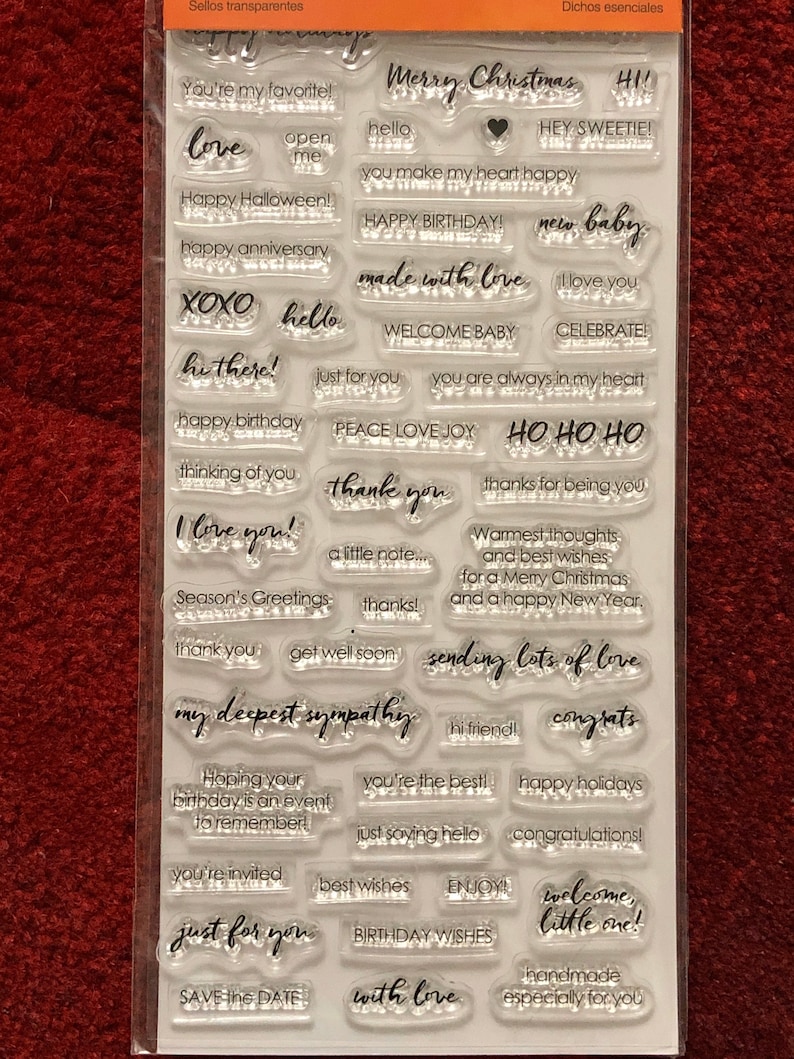 Sellos transparentes
Dichos esenciales
happy holidays
You're my favorite!
Merry Christmas
HI!
love
open
me
hello
HEY SWEETIE!
you make my heart happy
Happy Halloween!
HAPPY BIRTHDAY!
new baby
happy anniversary
made with love
I love you
XOXO
hello
WELCOME BABY
CELEBRATE!
hi there!
just for you
you are always in my heart
happy birthday
PEACE LOVE JOY
HO HO HO
thinking of you
thank you
thanks for being you
I love you!
a little note...
Warmest thoughts
and best wishes
for a Merry Christmas
and a happy New Year.
Season's Greetings
thanks!
thank you
get well soon
sending lots of love
my deepest sympathy
hi friend!
congrats
Hoping your
birthday is an event
to remember!
you're the best!
happy holidays
just saying hello
congratulations!
you're invited
best wishes
ENJOY!
welcome,
little one!
just for you
BIRTHDAY WISHES
SAVE the DATE
with love
handmade
especially for you